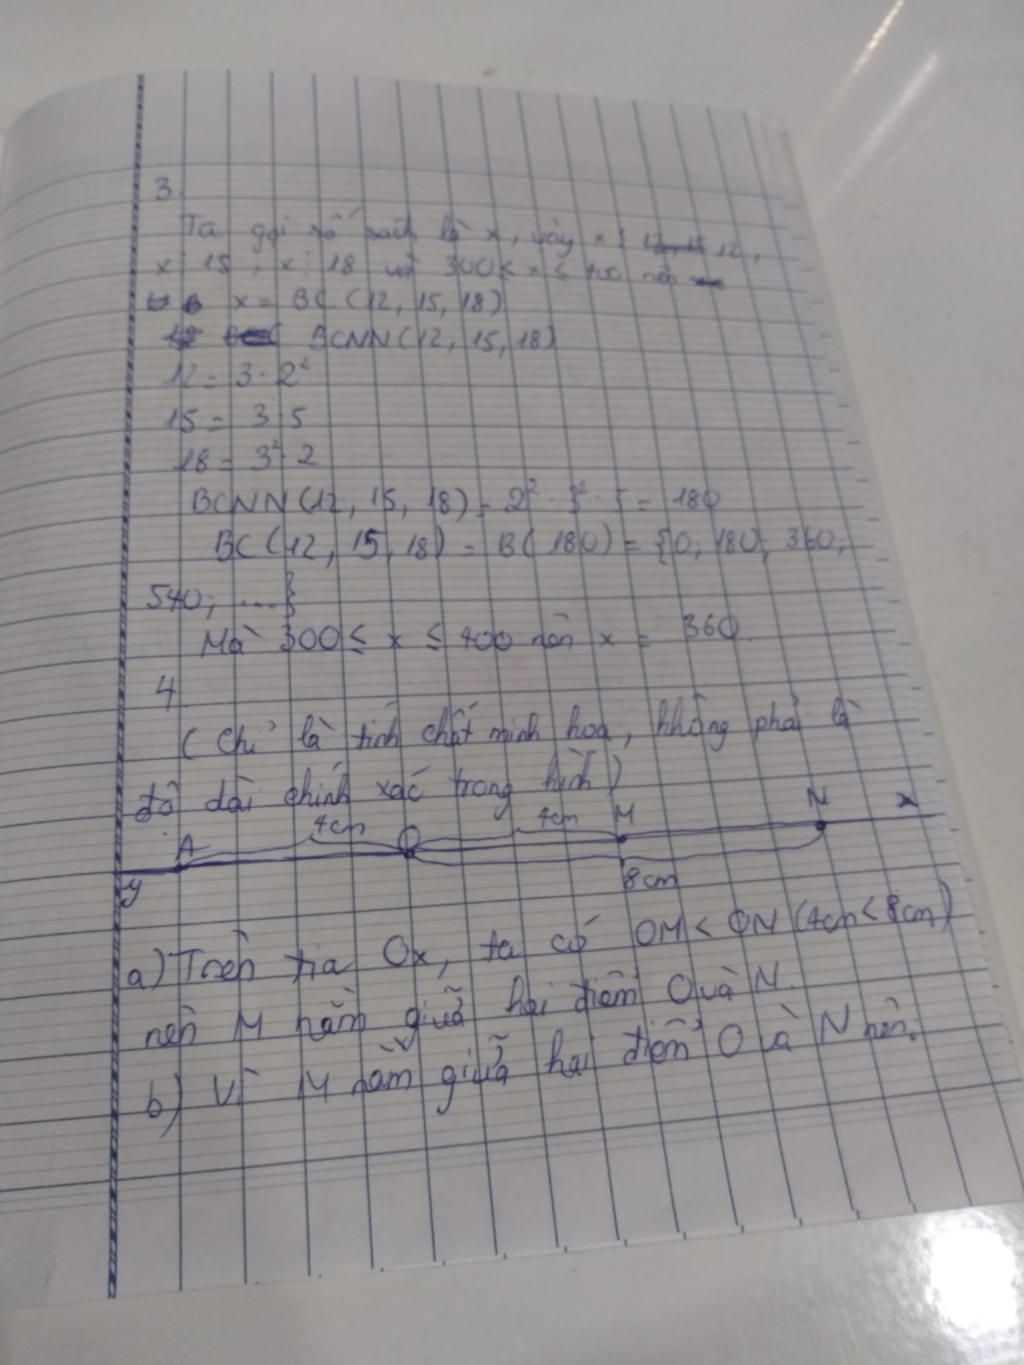 3.
Ta gọi số sách là x, vậy x ⋮ 12,
x ⋮ 15, x ⋮ 18 và 300 ≤ x ≤ 400 nên
x = BC (12, 15, 18)
BCNN(12, 15, 18)
12 = 3 · 2²
15 = 3 · 5
18 = 3² · 2
BCNN(12, 15, 18) = 2² · 3² · 5 = 180
BC (12, 15, 18) = B( 180) = {0; 180; 360;
540; ....}
Mà 300 ≤ x ≤ 400 nên x = 360.
4.
( Chỉ là tính chất minh hoạ, không phải là
độ dài chính xác trong hình)
A 4cm O 4cm M N x
y 8cm
a) Trên tia Ox, ta có OM < ON (4cm < 8cm)
nên M nằm giữa hai điểm O và N.
b) Vì M nằm giữa hai điểm O và N nên.